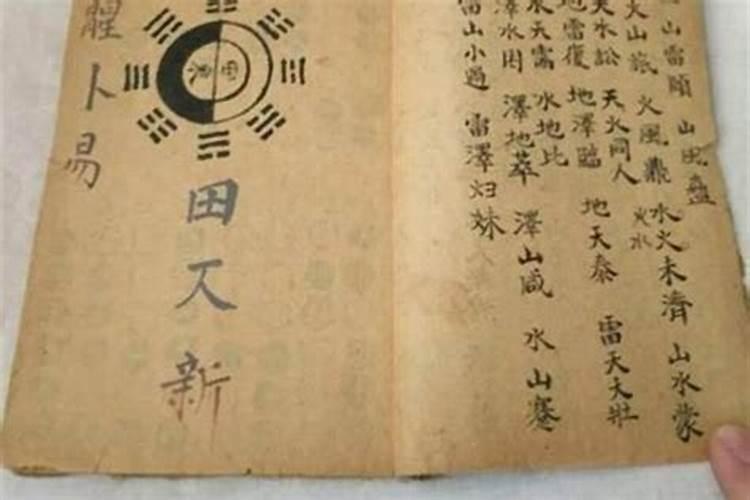 山雷頤
山風蠱
火山旅
火風鼎
火水
水火未濟
山水蒙
天水訟
天火同人
地雷復
地澤臨
地天泰
雷天大壯
水天需
水地比
澤水困
澤地萃
澤山咸
水山蹇
雷山小過
雷澤归妹
田
新
卜易